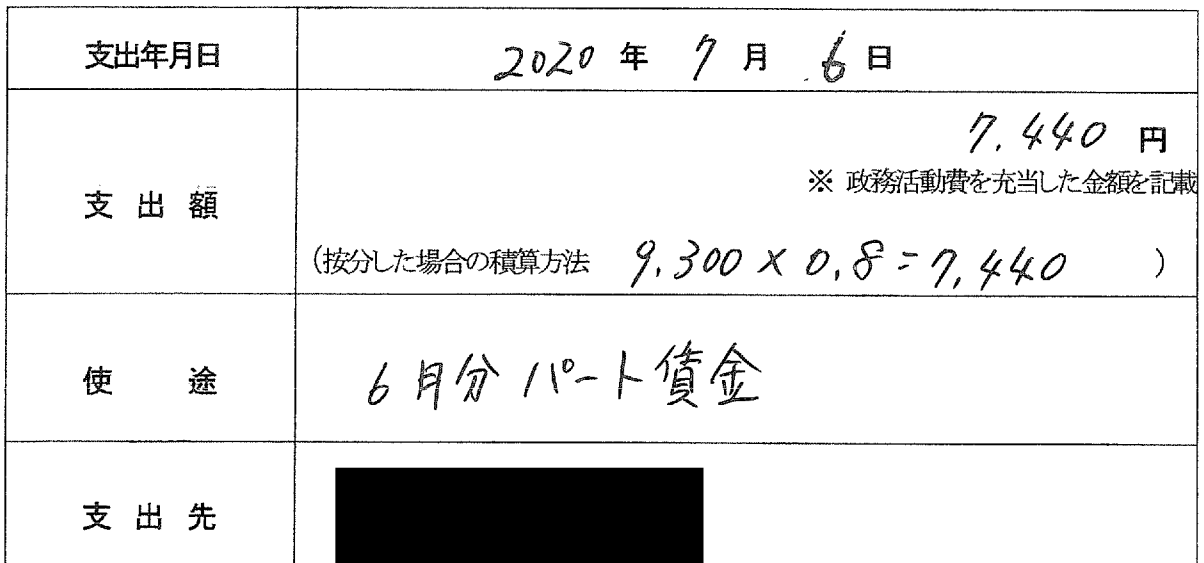 支出年月日 2020 年 7 月 6 日
7,440 円
※ 政務活動費を充当した金額を記載
支 出 額
(按分した場合の積算方法 9,300 × 0.8 = 7,440 )
使 途 6月分 パート賃金
支 出 先